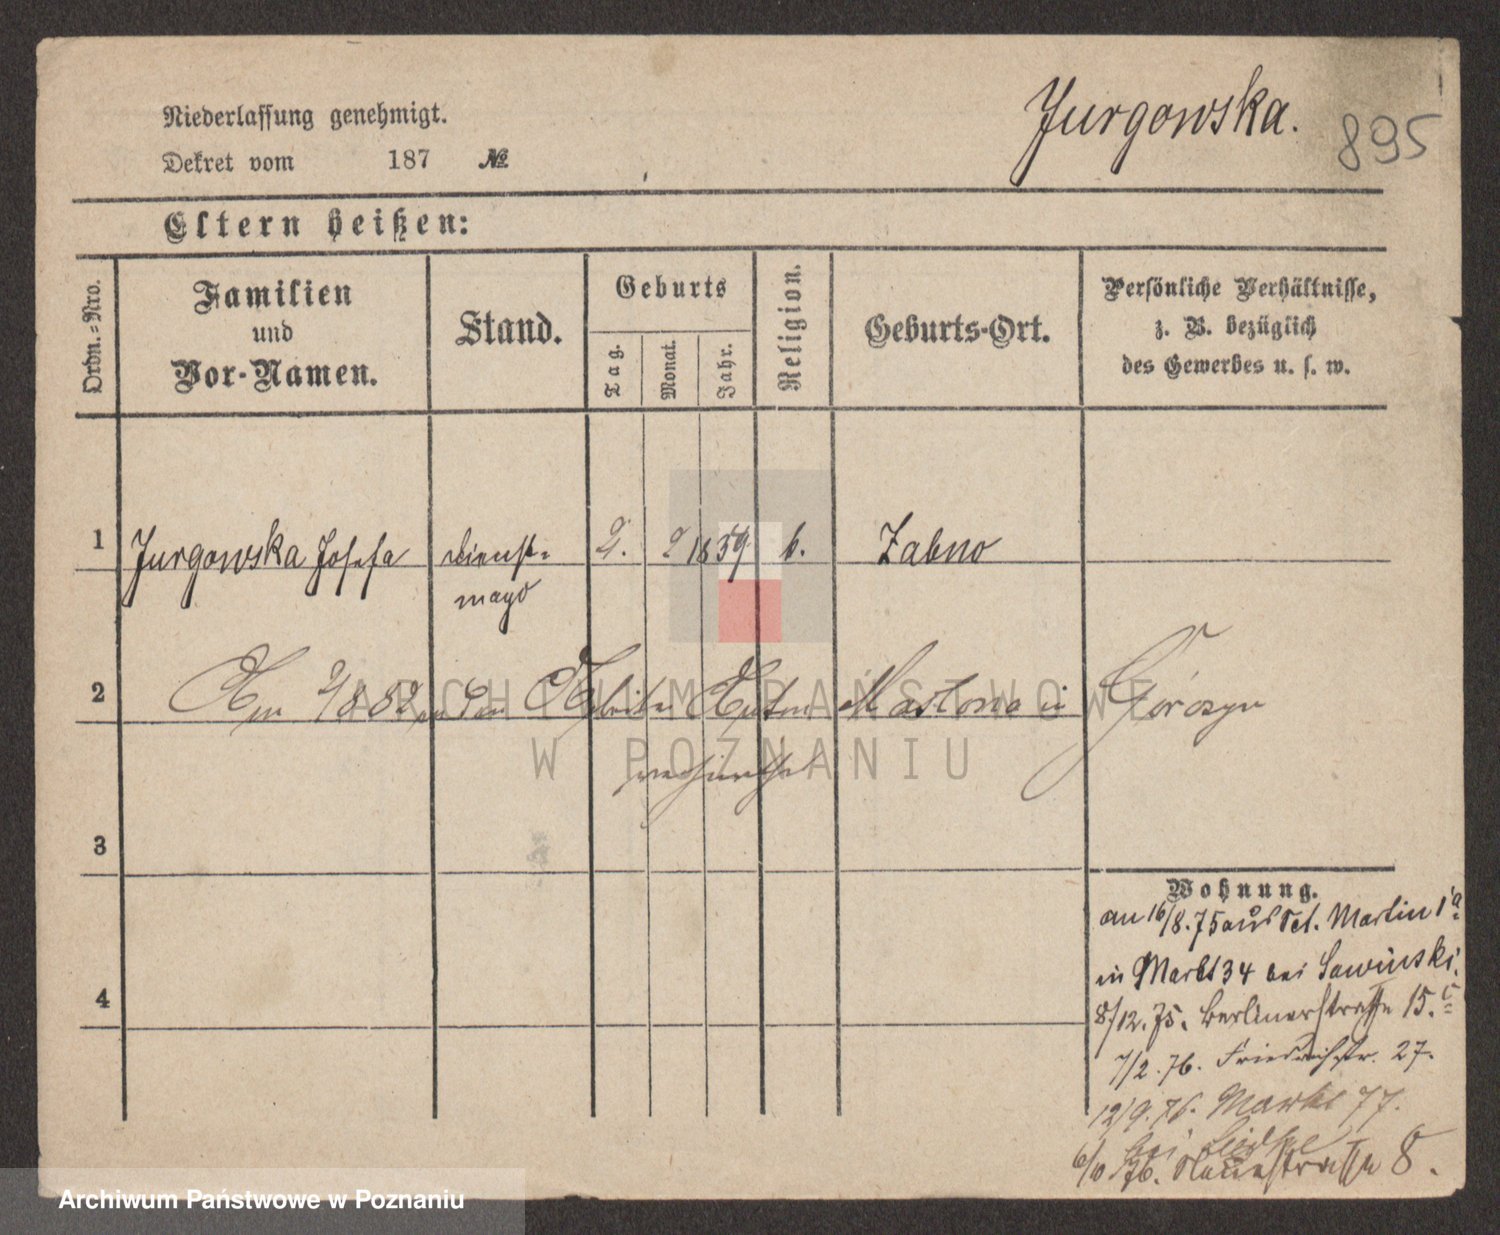 Niederlassung genehmigt.
Dekret vom 187 №
Jurgowska.
895
Eltern heißen:
Ordn.-Nro.
Familien
und
Vor-Namen.
Stand.
Geburts
Tag.
Monat.
Jahr.
Religion.
Geburts-Ort.
Persönliche Verhältnisse,
z. B. bezüglich
des Gewerbes u. s. w.
1 Jurgowska Josefa dienst= 2. 2 1859 k. Zabno
magd
2 1882 den Arbeiter Anton in Górczyn
ARCHIWUM PAŃSTWOWE
W POZNANIU
3
Wohnung.
an 16/8.75 aus Set. Martin 1a
in Markt 34 bei Sawinski.
4
8/12.75. Berlinerstraße 15.c
7/2.76. Friedrichstr. 27.
12/9.76. Markt 77.
bei
6/10 76. 8.
Archiwum Państwowe w Poznaniu